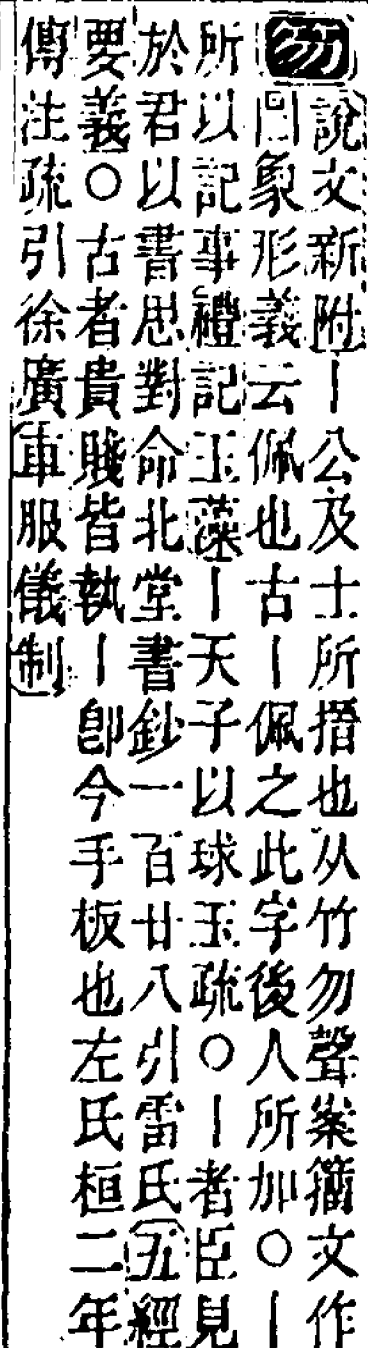 笏
說文新附丨公及士所搢也从竹勿聲案籒文作
𠥓象形義云佩也古丨佩之此字後人所加○丨
所以記事禮記玉藻丨天子以球玉疏○丨者臣見
於君以書思對命北堂書鈔一百廿八引雷氏五經
要義○古者貴賤皆執丨卽今手板也左氏桓二年
傳注疏引徐廣車服儀制